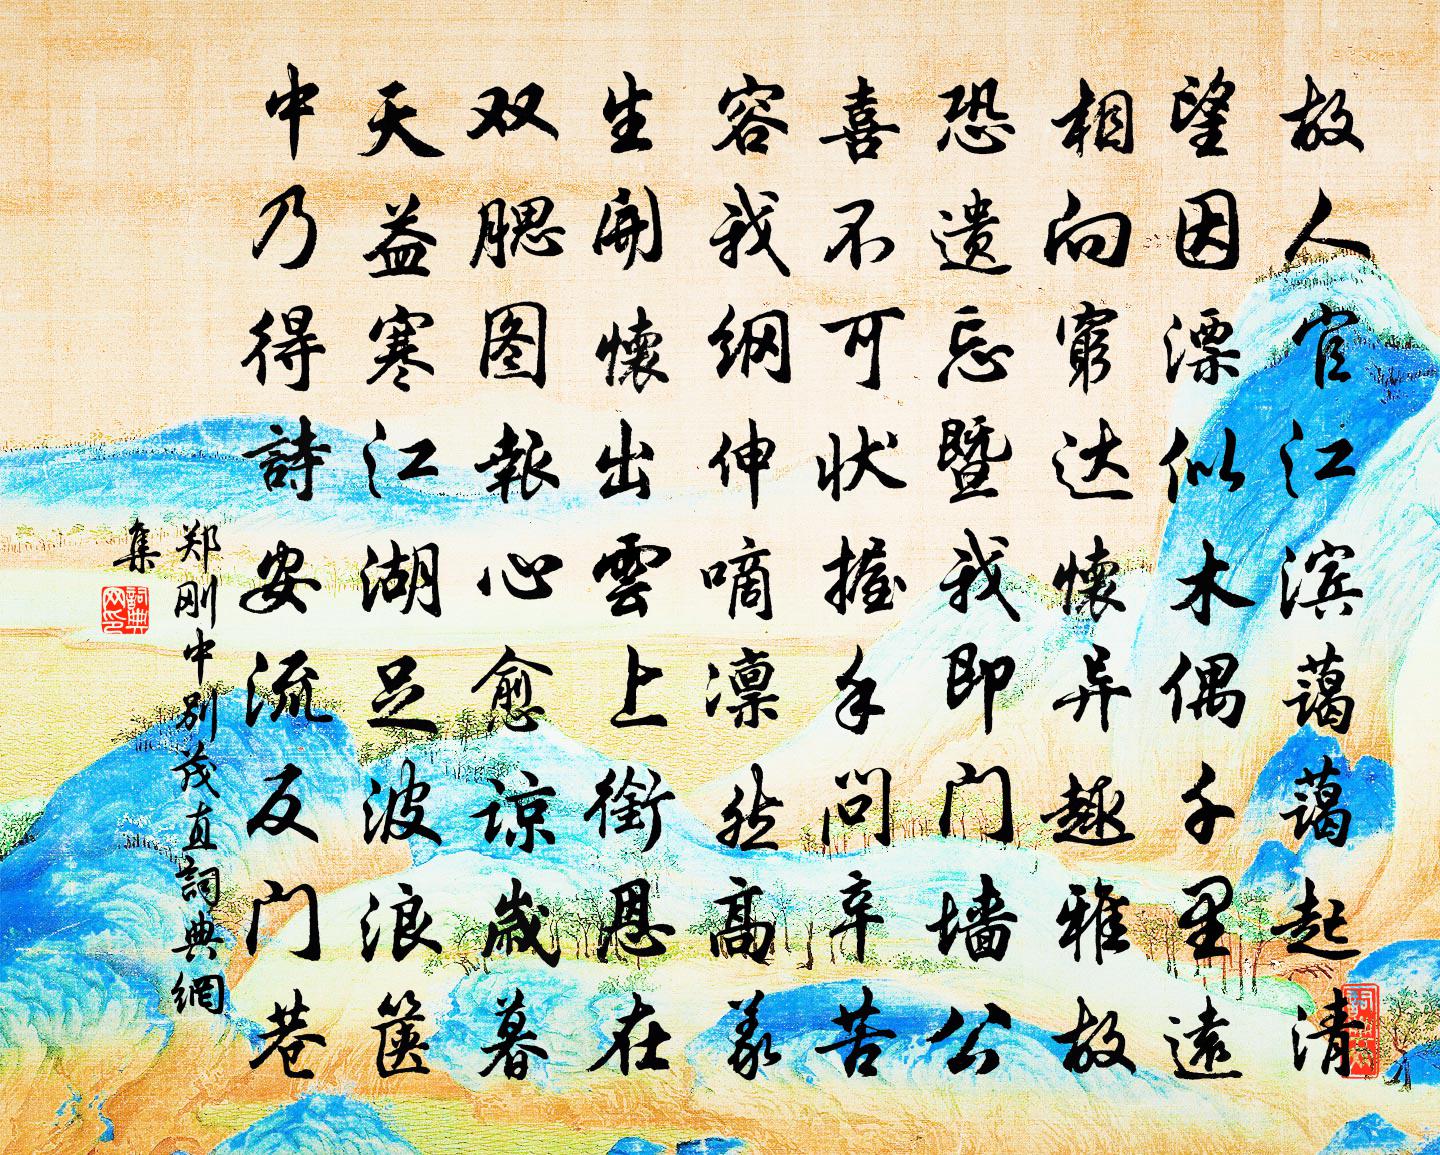 故人官江滨藹藹起清
望因漂似木偶千里遠
相向窮达懷异趣雅故
恐遗忘暨我即门墙公
喜不可状握手问辛苦
容我纲伸嘀凛然高義
生開懷出雲上銜恩在
双腮图報心愈谅歲暮
天益寒江湖足波浪箧
中乃得詩安流反门巷
郑刚中别茂直詞典網
集
詞典网印